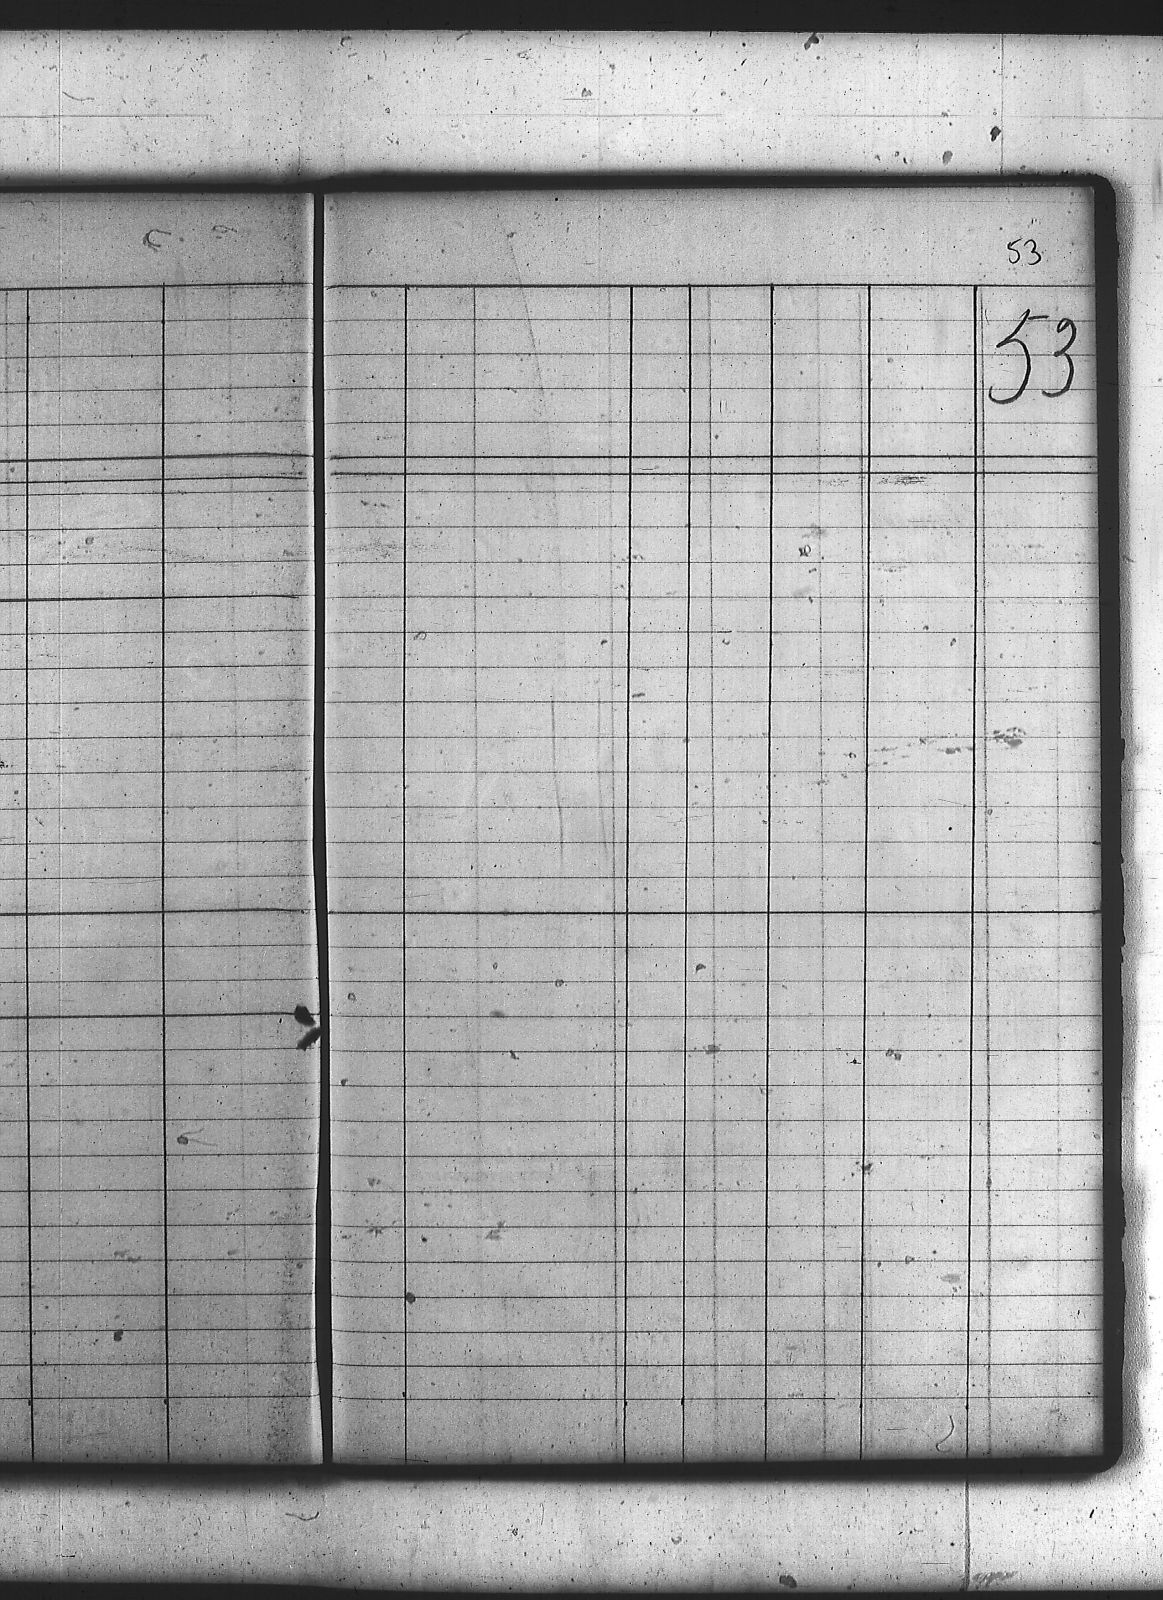 53
53